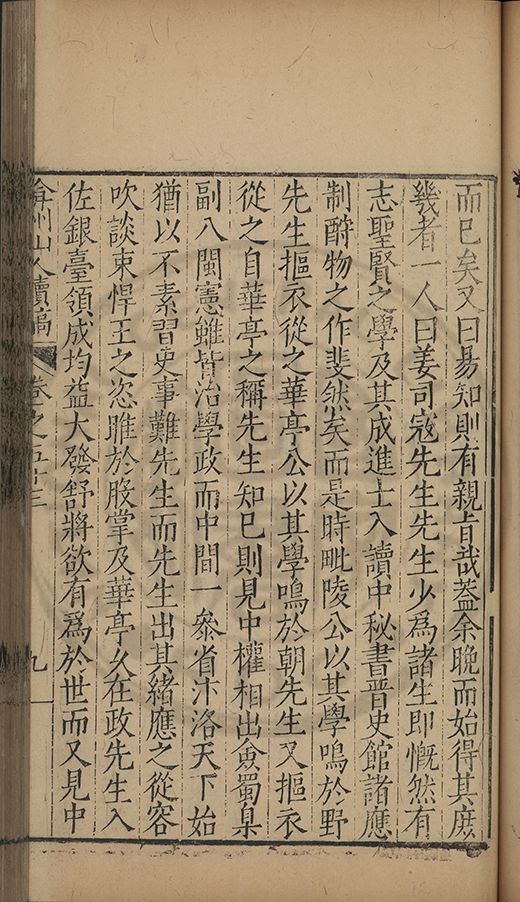 而已矣又曰易知則有親旨哉蓋余晚而始得其庶
幾者一人曰姜司寇先生先生少為諸生即慨然有
志聖賢之學及其成進士入讀中秘書晉史館諸應
制酧物之作斐然矣而是時毗陵公以其學鳴於野
先生摳衣從之華亭公以其學鳴於朝先生又摳衣
從之自華亭之稱先生知已則見中權相出僉蜀臬
副八閩憲雖皆治學政而中間一叅省汴洛天下始
猶以不素習吏事難先生而先生出其緒應之從容
吹談束悍王之恣睢於股掌及華亭久在政先生入
佐銀臺領成均益大發舒將欲有為於世而又見中
弇州山人續稿 卷之五十三 九